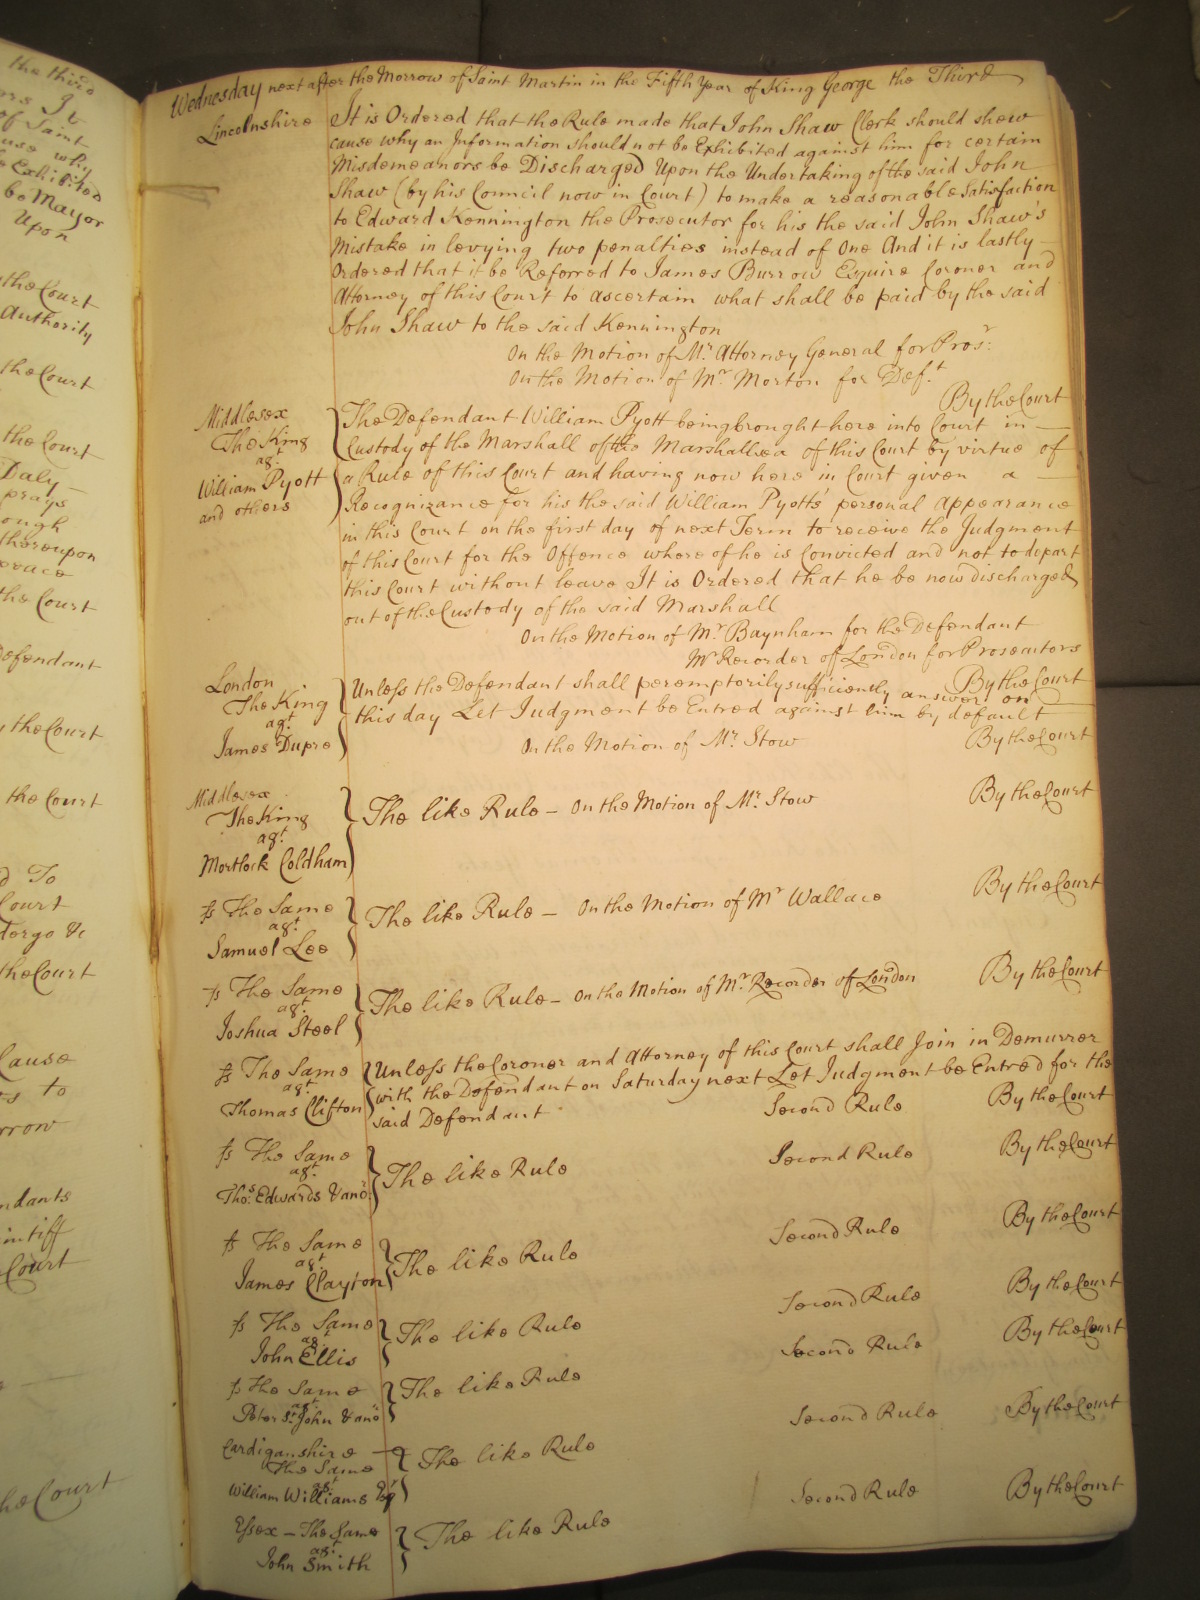 the third
of Saint
Exhibited
be Mayor
Upon
the Court
Authority
the Court
the Court
Daly
prays
thereupon
the Court
Defendant
the Court
the Court
To
Court
the Court
Cause
to
ndants
intiff
Court
the Court
Wednesday next after the Morrow of Saint Martin in the Fifth Year of King George the Third
Lincolnshire It is Ordered that the Rule made that John Shaw Clerk should shew
cause why an Information should not be Exhibited against him for certain
Misdemeanors be Discharged Upon the Undertaking of the said John
Shaw (by his Council now in Court) to make a reasonable Satisfaction
to Edward Kennington the Prosecutor for his the said John Shaw's
Mistake in levying two penalties instead of One And it is lastly
Ordered that it be Referred to James Burrow Esquire Coroner and
Attorney of this Court to ascertain what shall be paid by the said
John Shaw to the said Kennington
On the Motion of Mr. Attorney General for Prosr:
On the Motion of Mr. Morton for Def.t
By the Court
Middlesex
The King
agt.
William Pyott
and others
The Defendant William Pyott being brought here into Court in
Custody of the Marshall of the Marshalsea of this Court by virtue of
a Rule of this Court and having now here in Court given a
Recognizance for his the said William Pyotts' personal Appearance
in this Court on the first day of next Term to receive the Judgment
of this Court for the Offence where of he is Convicted and not to depart
this Court without leave It is Ordered that he be now discharged
out of the Custody of the said Marshall
On the Motion of Mr. Baynham for the Defendant
Mr Recorder of London for Prosecutors
By the Court
London
The King
agt.
James Dupre
Unless the Defendant shall peremptorily sufficiently answer on
this day Let Judgment be Entred against him by default
On the Motion of Mr. Stow By the Court
Middlesex
The King
agt.
Mortlock Coldham
The like Rule – On the Motion of Mr. Stow By the Court
fs The Same
agt.
Samuel Lee
The like Rule – On the Motion of Mr Wallace By the Court
fs The Same
agt.
Joshua Steel
The like Rule – On the Motion of Mr. Recorder of London By the Court
fs The Same
agt.
Thomas Clifton
Unless the Coroner and Attorney of this Court shall Join in Demurrer
with the Defendant on Saturday next Let Judgment be Entred for the
said Defendant Second Rule By the Court
fs The Same
agt.
Thos. Edwards & ano.
The like Rule Second Rule By the Court
fs The Same
agt.
James Clayton
The like Rule Second Rule By the Court
fs The Same
agt.
John Ellis
The like Rule Second Rule By the Court
fs The Same
agt.
Peter St. John & ano
The like Rule Second Rule By the Court
Cardiganshire
The Same
agt.
William Williams Esqr
The like Rule Second Rule By the Court
Essex – The Same
agt.
John Smith
The like Rule Second Rule By the Court